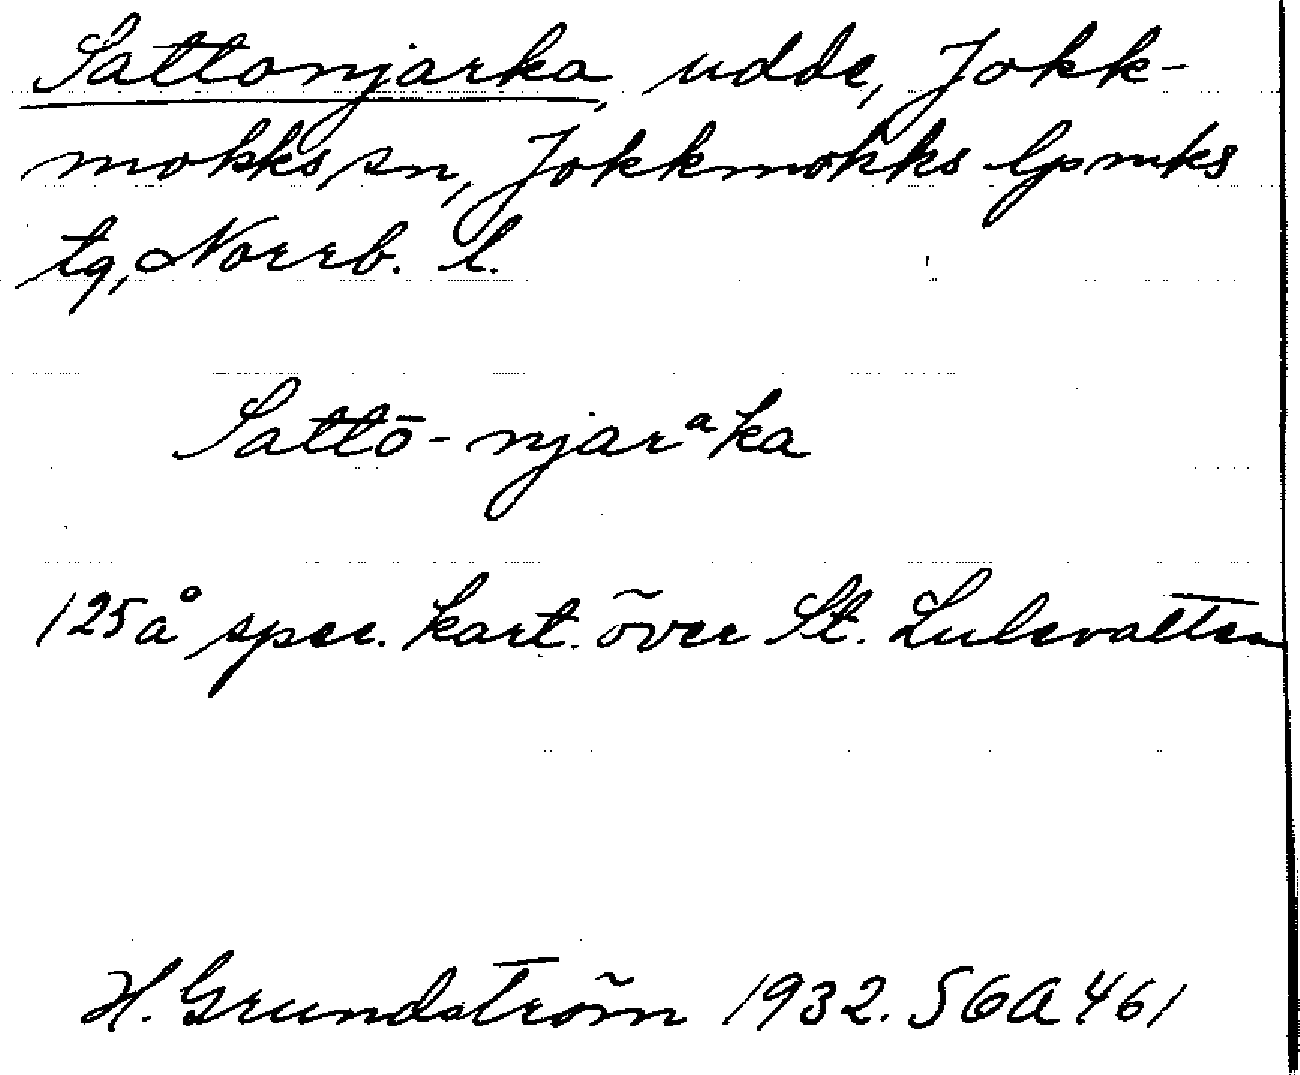 Sattonjarka, udde, Jokk-
mokks sn, Jokkmokks lpmks
tg, Norrb. l.
Sattō-njarᵃka
125 å spec. kart. över St. Lulevatten
H. Grundström 1932. SGA 461